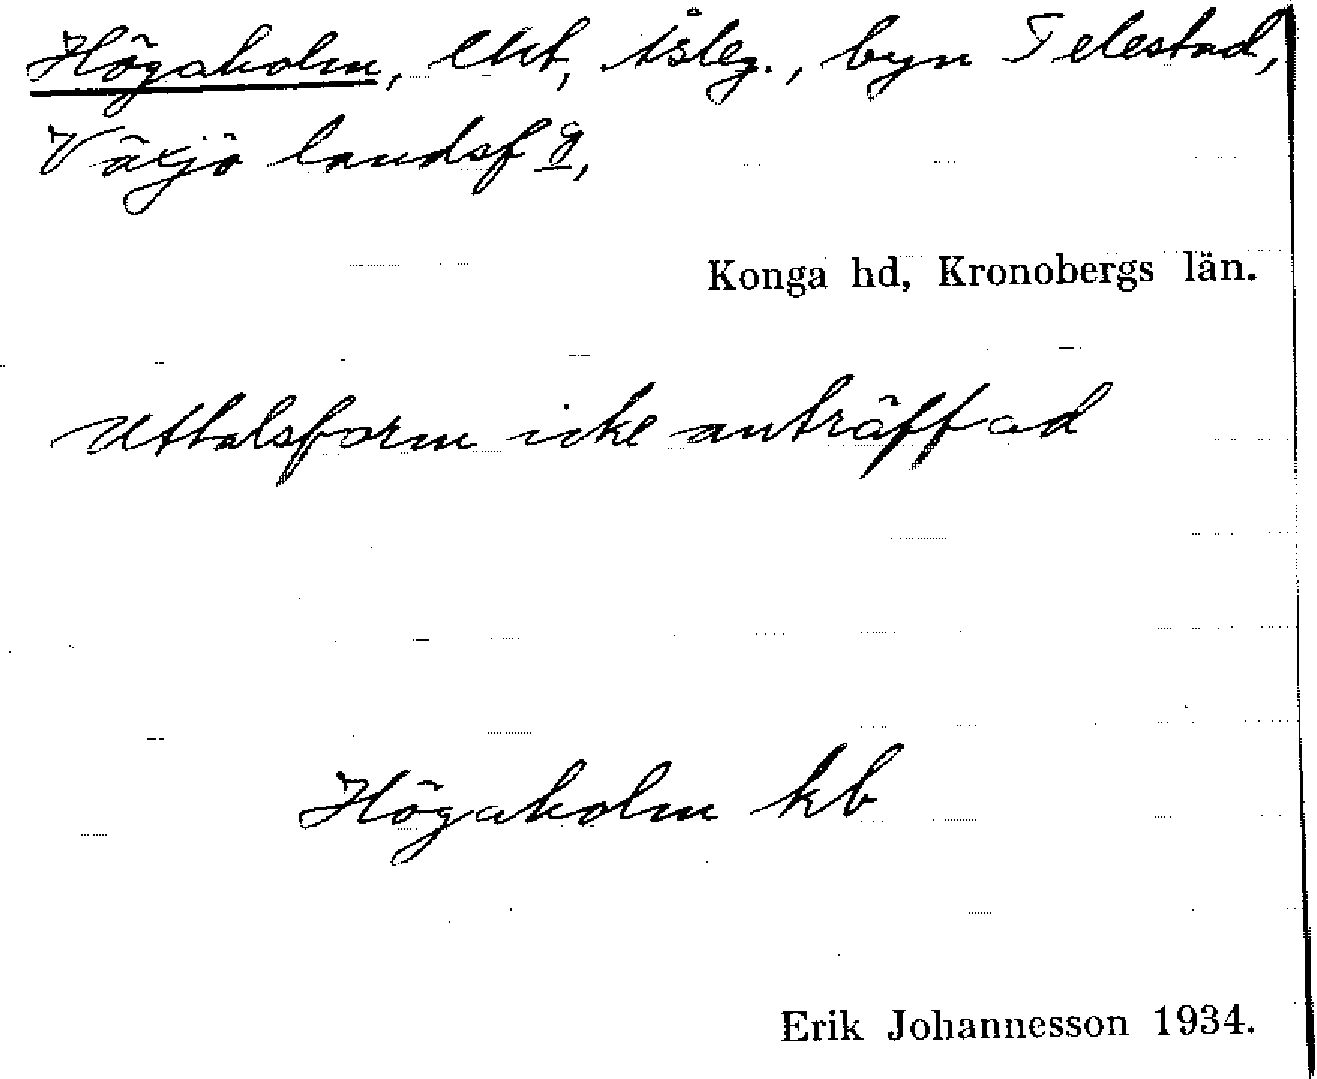 Högaholm, lht, tslég., byn Telestad,
Växjö landsf g,
Konga hd, Kronobergs län.
Uttalsform icke anträffad
Högaholm kb
Erik Johannesson 1934.